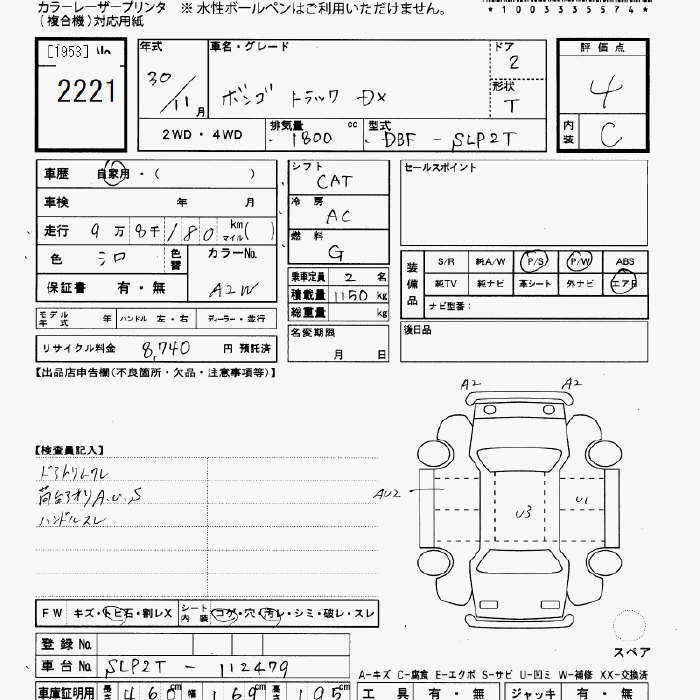 カラーレーザープリンタ ※ 水性ボールペンはご利用いただけません。
(複合機)対応用紙
*1003335574*
[1953]
2221
年式
30/11月
車名・グレード
ボンゴ トラック DX
ドア
2
形状
T
評価点
4
内装
C
2WD・4WD
排気量
1800 cc
型式
DBF - SLP2T
車歴 自家用・( )
車検 年 月
走行 9万8千180 km マイル( )
色 シロ 色替
カラーNo.
A2W
保証書 有・無
モデル年式 年 ハンドル 左・右 ディーラー・並行
リサイクル料金 8,740 円 預託済
シフト
CAT
冷房
AC
燃料
G
乗車定員 2 名
積載量 1150 kg
総重量 kg
名変期限
月 日
セールスポイント
装備品
S/R 純A/W P/S P/W ABS
純TV 純ナビ 革シート 外ナビ エアB
ナビ型番:
後日品
【出品店申告欄(不良箇所・欠品・注意事項等)】
【検査員記入】
ドアトリムクレ
荷台アオリA.U.S
ハンドルスレ
A2 A2
AU2
U3
U1
スペア
FW キズ・トビ石・割レX シート内装 コゲ・穴・汚レ・シミ・破レ・スレ
登録No.
車台No. SLP2T - 112479
A-キズ C-腐食 E-エクボ S-サビ U-凹ミ W-補修 XX-交換済
車庫証明用 長さ 460cm 幅 169cm 高さ 195cm
工具 有・無 ジャッキ 有・無